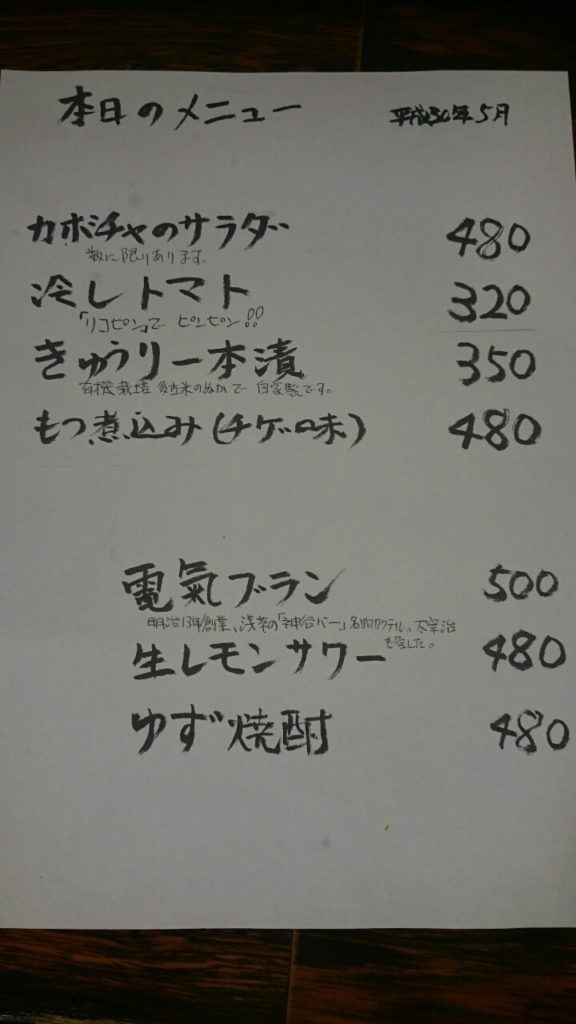 本日のメニュー 平成30年5月
カボチャのサラダ 480
数に限りあります。
冷しトマト 320
「リコピン」で ピンピン!!
きゅうり一本漬 350
有機栽培 玄米のぬかで 自家製です。
もつ煮込み(チゲ味) 480
電氣ブラン 500
明治13年創業、浅草の「神谷バー」名物カクテル。太宰治
も愛した。
生レモンサワー 480
ゆず焼酎 480